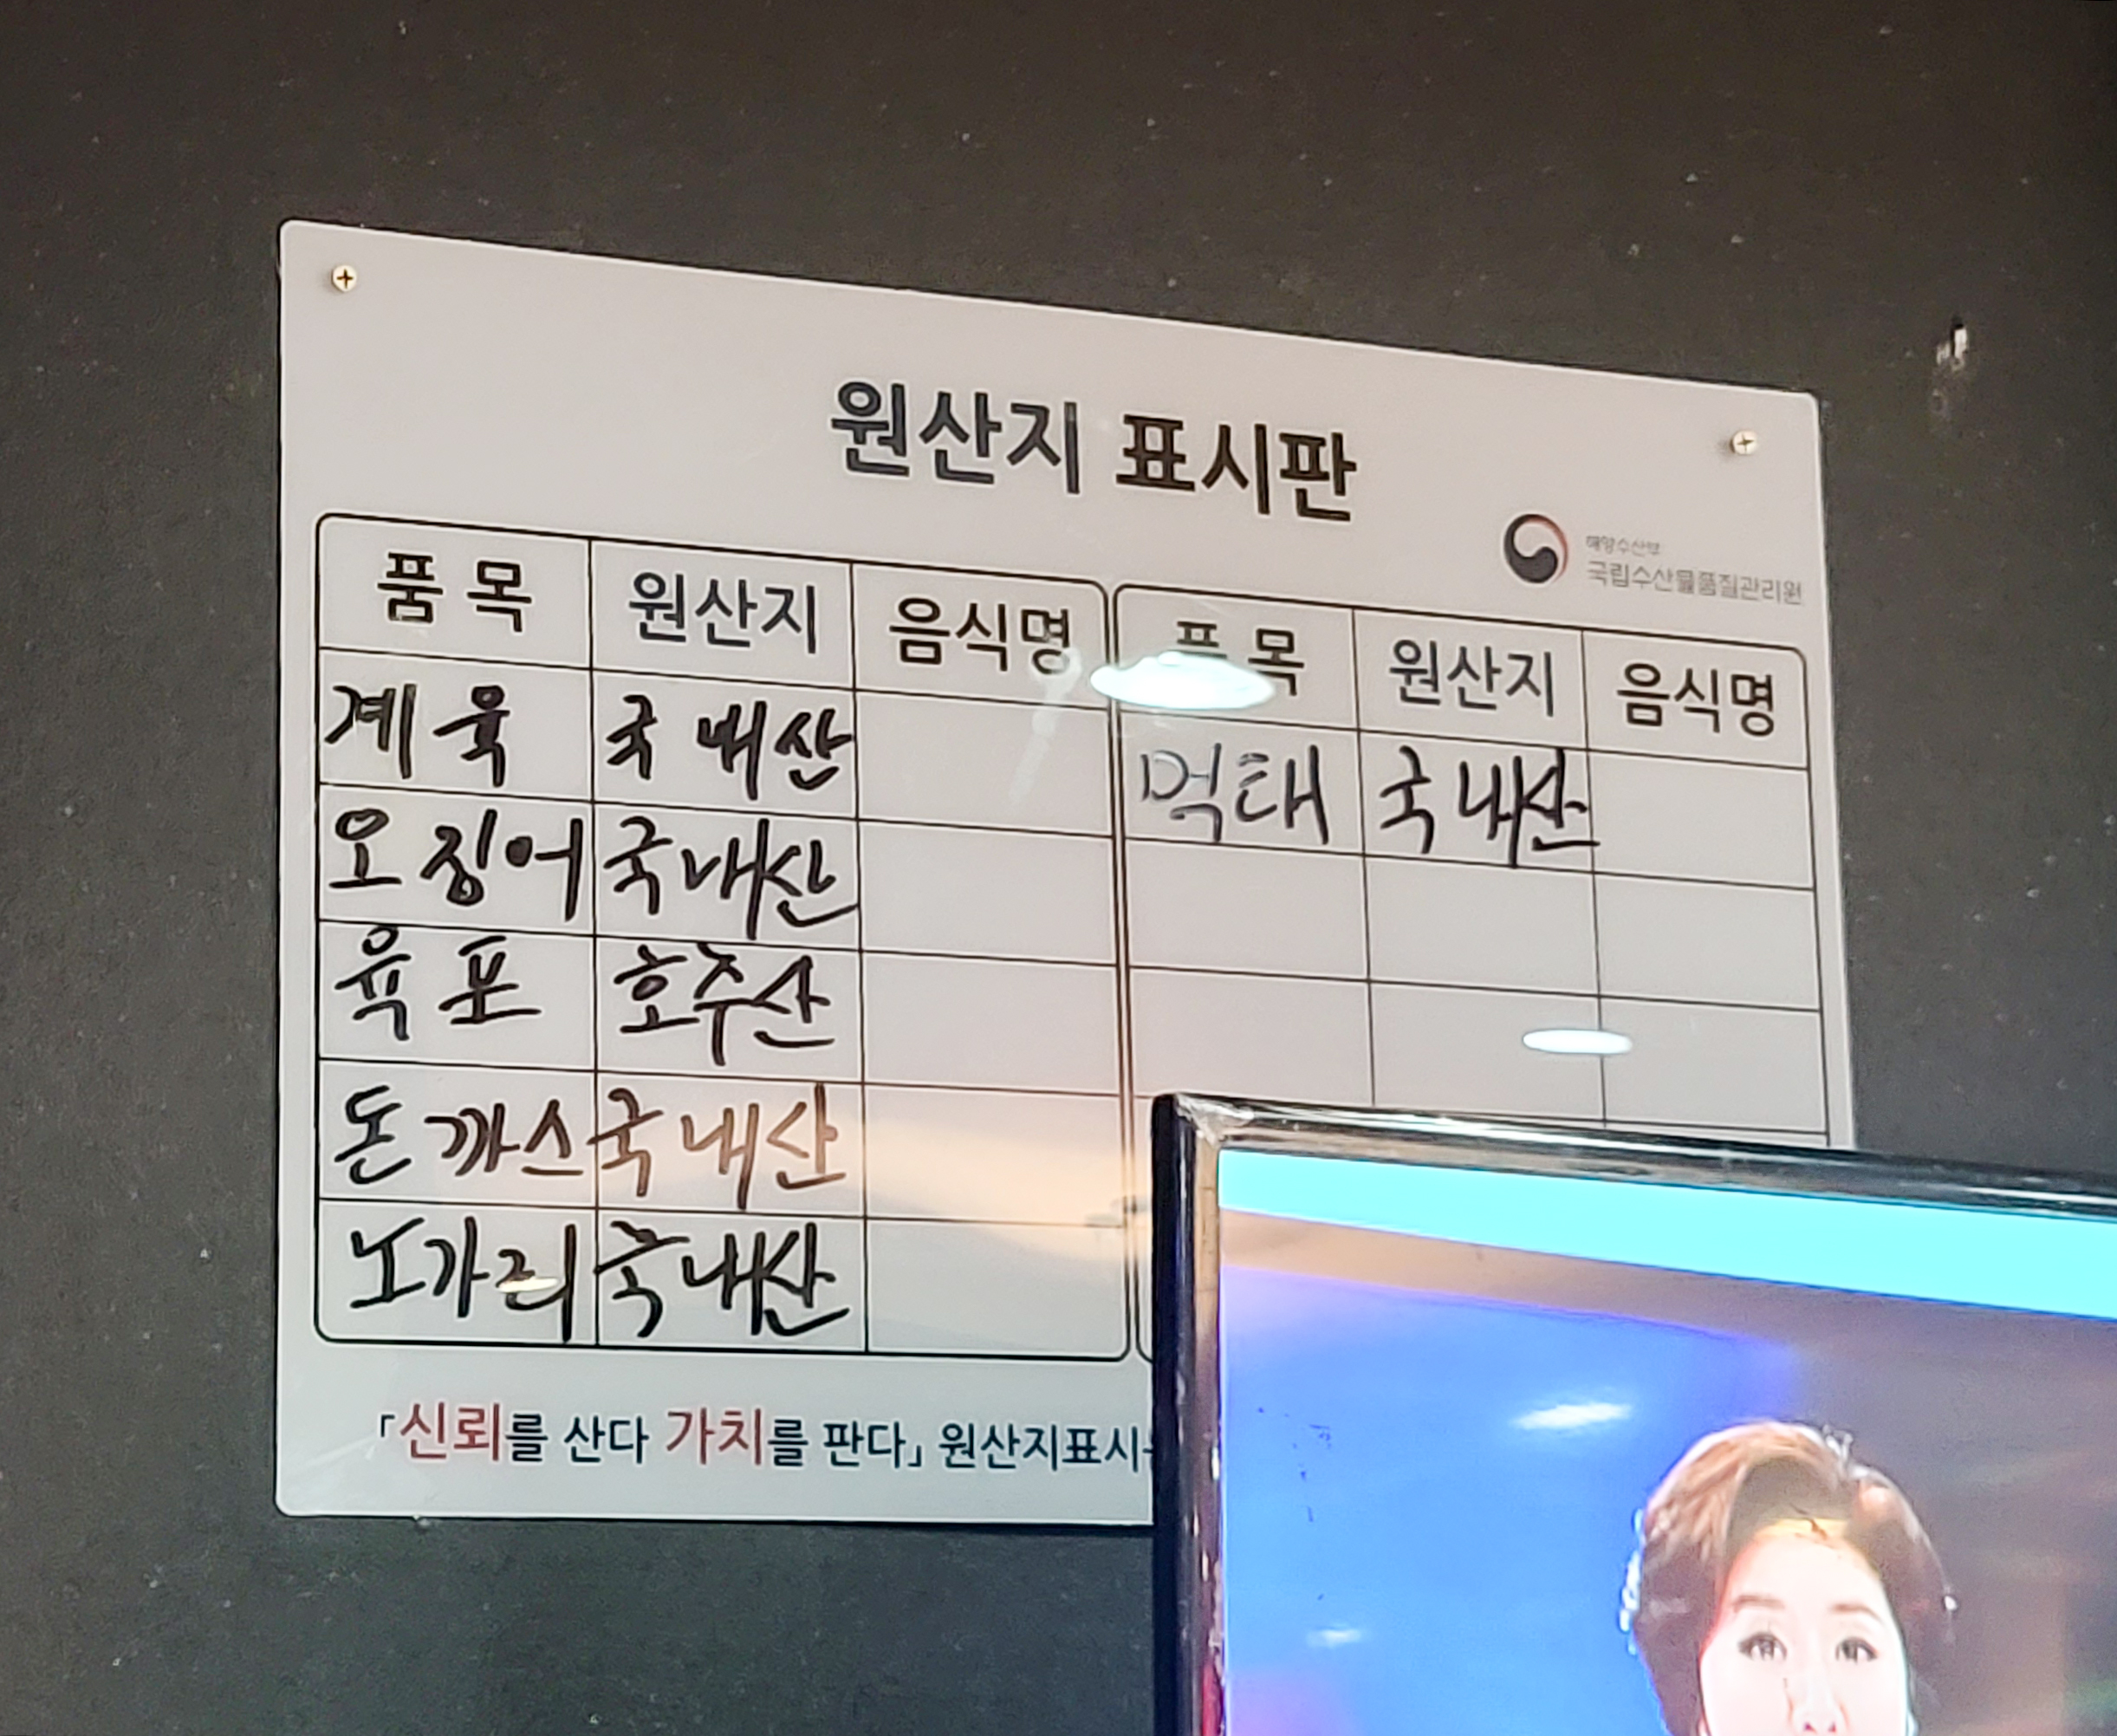 원산지 표시판
해양수산부
국립수산물품질관리원
품목 원산지 음식명 품목 원산지 음식명
계육 국내산 먹태 국내산
오징어 국내산
육포 호주산
돈까스 국내산
노가리 국내산
「신뢰를 산다 가치를 판다」 원산지표시